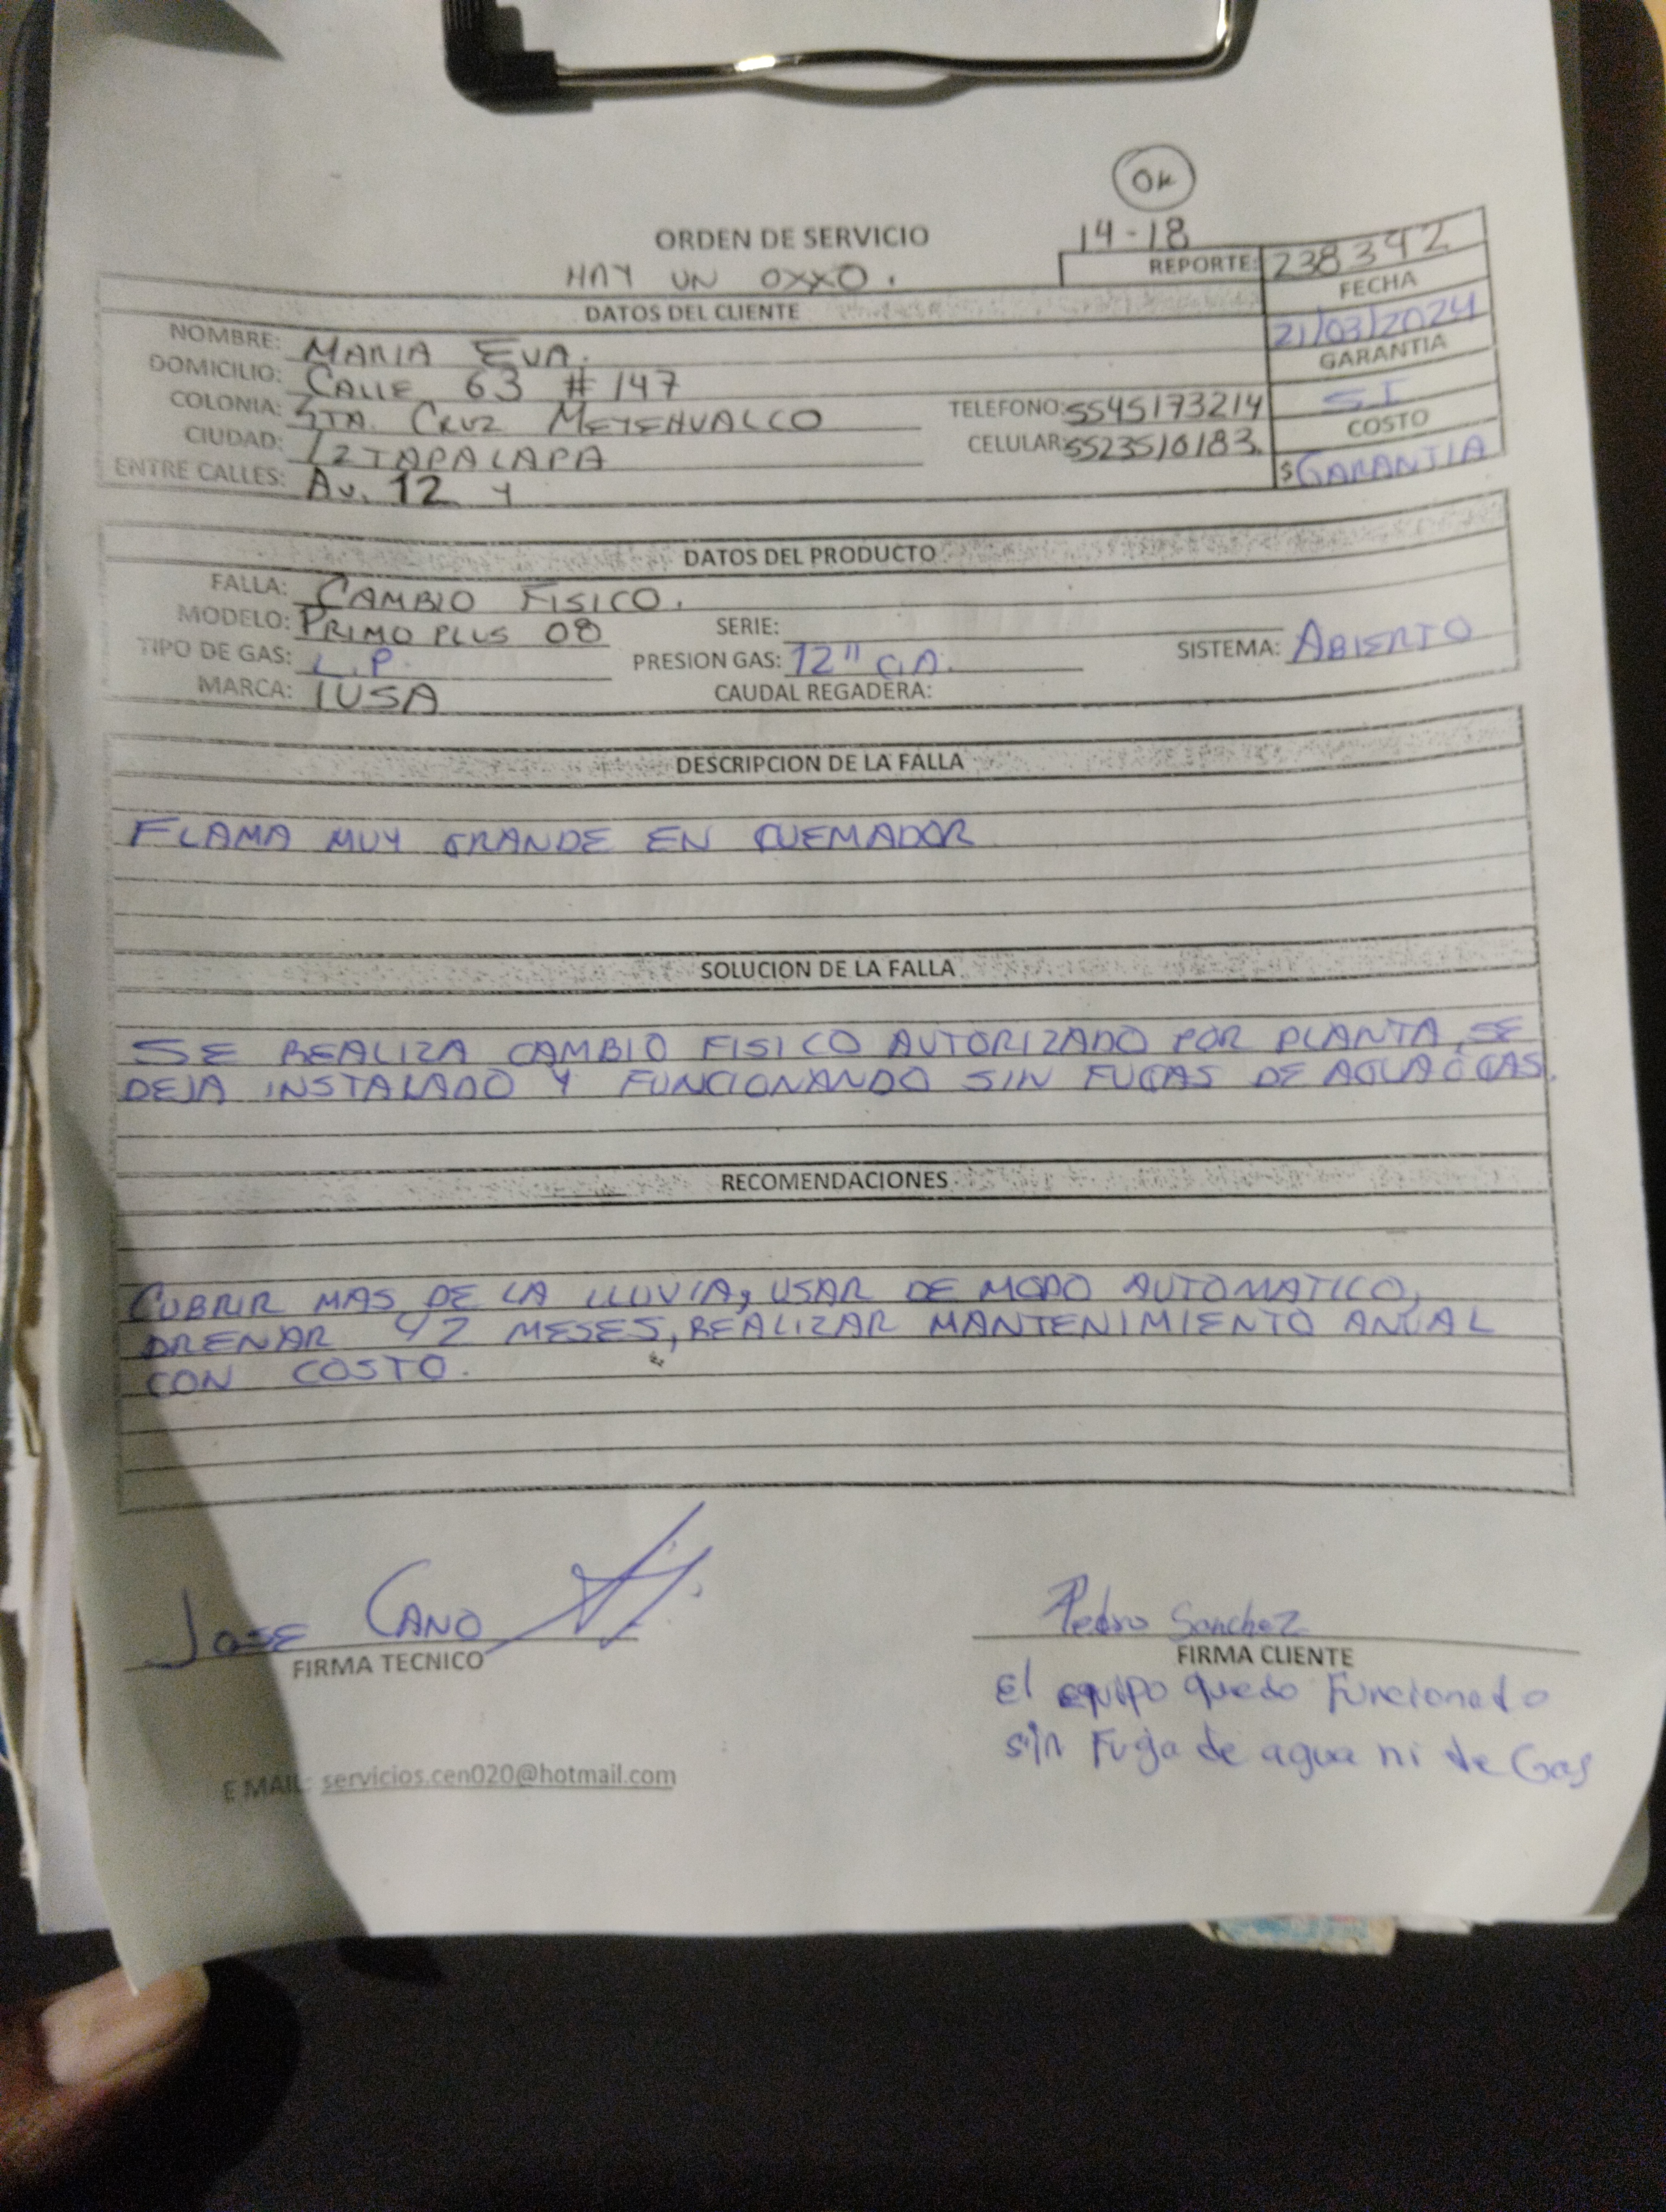 OK
14-18
ORDEN DE SERVICIO
HAY UN OXXO.
REPORTE: 238392
DATOS DEL CLIENTE
FECHA
21/03/2024
NOMBRE: MARIA EVA.
GARANTIA
SI
DOMICILIO: CALLE 63 #147
COLONIA: STA. CRUZ MEYEHUALCO
TELEFONO: 5545173214
COSTO
CIUDAD: IZTAPALAPA
CELULAR: 5523510183.
$ GARANTIA
ENTRE CALLES: AV. 12 Y
DATOS DEL PRODUCTO
FALLA: CAMBIO FISICO.
MODELO: PRIMO PLUS 08 SERIE:
TIPO DE GAS: L.P. PRESION GAS: 12" C.A. SISTEMA: ABIERTO
MARCA: IUSA CAUDAL REGADERA:
DESCRIPCION DE LA FALLA
FLAMA MUY GRANDE EN QUEMADOR
SOLUCION DE LA FALLA
SE REALIZA CAMBIO FISICO AUTORIZADO POR PLANTA, SE
DEJA INSTALADO Y FUNCIONANDO SIN FUGAS DE AGUA O GAS.
RECOMENDACIONES
CUBRIR MAS DE LA LLUVIA, USAR DE MODO AUTOMATICO,
DRENAR MESES, REALIZAR MANTENIMIENTO ANUAL
CON COSTO.
JOSE CANO
FIRMA TECNICO
Pedro Sanchez
FIRMA CLIENTE
El equipo quedo Funcionado
sin Fuga de agua ni de Gas
E MAIL: servicios.cen020@hotmail.com